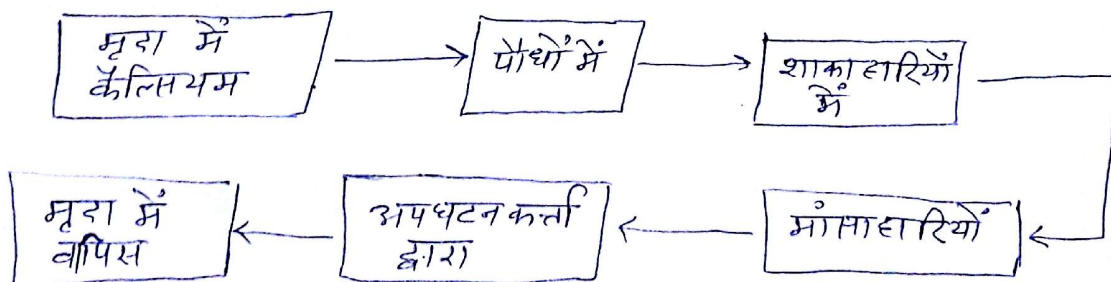 मृदा में
कैल्सियम
पौधों में
शाकाहारियों
में
मांसाहारियों
अपघटन कर्त्ता
द्वारा
मृदा में
वापिस